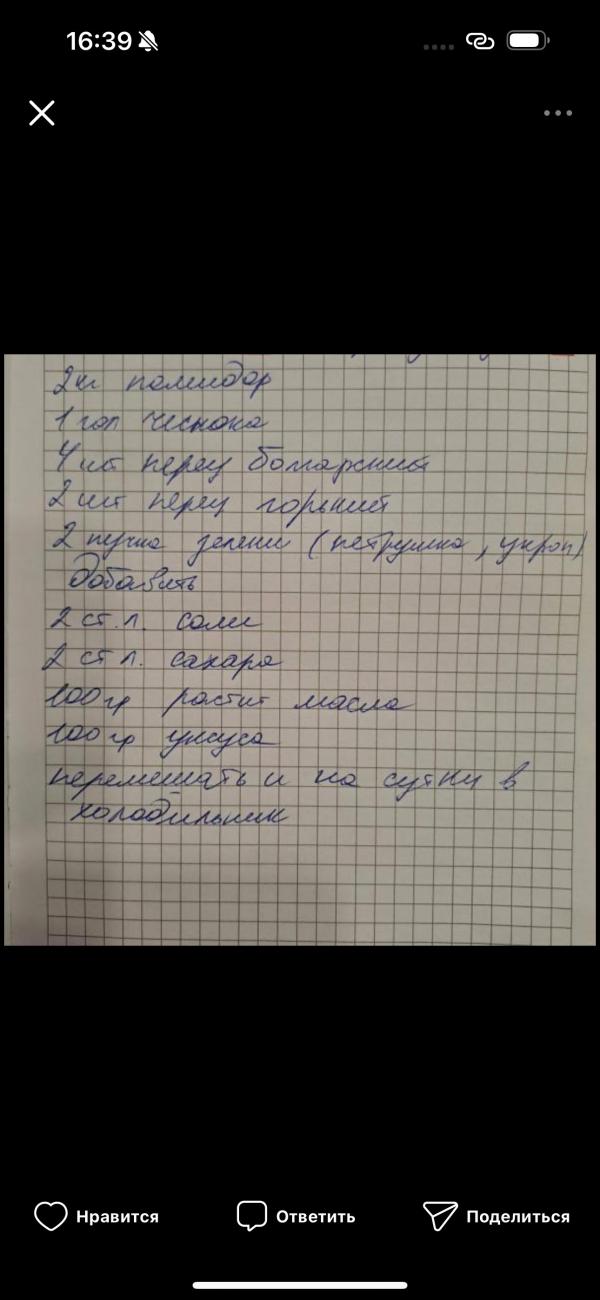 16:39
2 кг помидор
1 гол чеснока
4 шт перец болгарский
2 шт перец горький
2 пучка зелени (петрушка, укроп)
Добавить
2 ст. л. соли
2 ст л. сахара
100 гр растит масла
100 гр уксуса
перемешать и на сутки в
холодильник
Нравится Ответить Поделиться